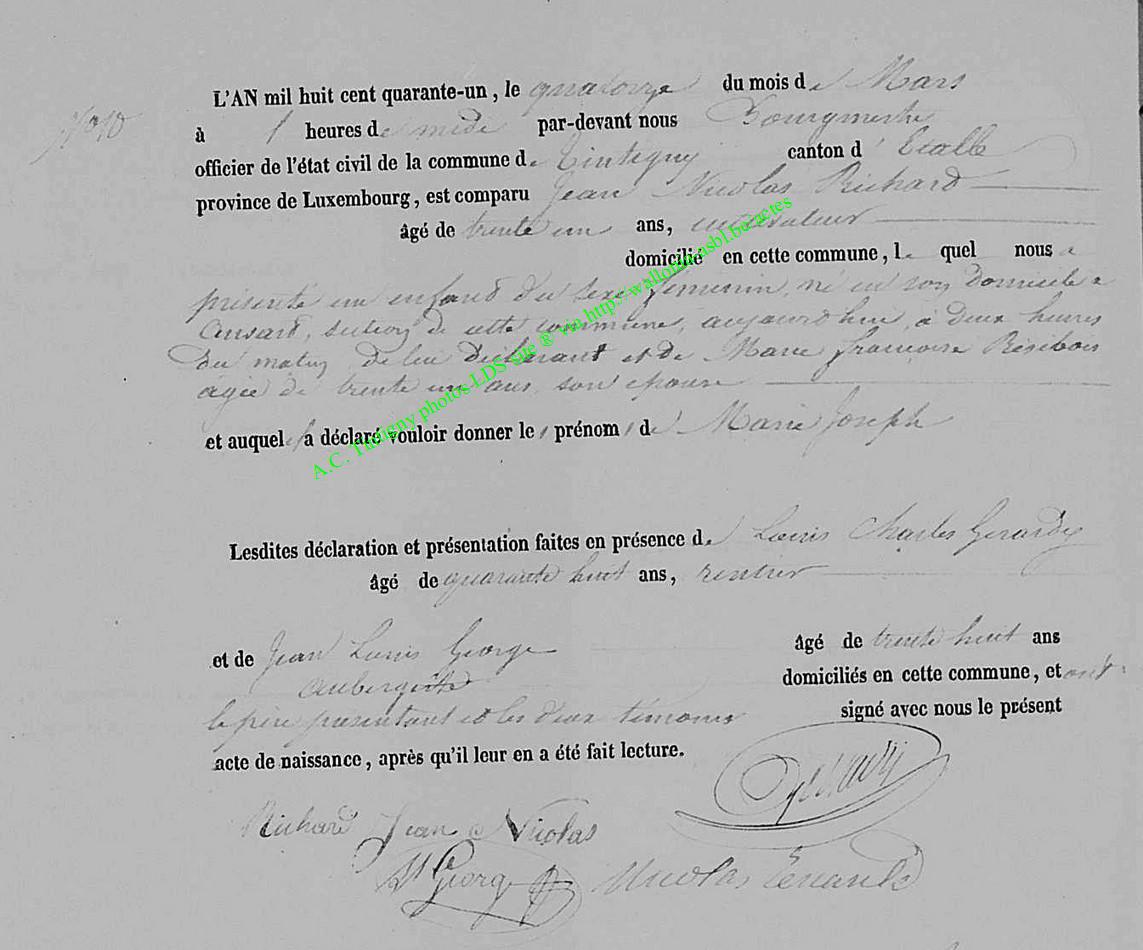 L'AN mil huit cent quarante-un, le quatorze du mois de Mars
à 1 heures de midi par-devant nous Bourgmestre
officier de l'état civil de la commune de Tintigny canton d'Etalle
province de Luxembourg, est comparu Jean Nicolas Richard
âgé de trente un ans, cultivateur
domicilié en cette commune, le quel nous a
présenté un enfant du sexe féminin, né en son domicile a
Ansart, section de cette commune, aujourd'hui, à deux heures
du matin, de lui déclarant et de Marie françoise Résibois
agée de trente un ans, son epouse
et auquel il a déclaré vouloir donner les prénoms de Marie Joseph
Lesdites déclaration et présentation faites en présence de Louis Charles Gerardy
âgé de quarante huit ans, rentier
et de Jean Louis George âgé de trente huit ans
aubergiste domiciliés en cette commune, et ont
le père présentant et les deux témoins signé avec nous le présent
acte de naissance, après qu'il leur en a été fait lecture.
Gérardy
Richard Jean Nicolas
George Nicolas
A.C. Tintigny photos LDS site ® via http://wallonia.asbl.be/actes